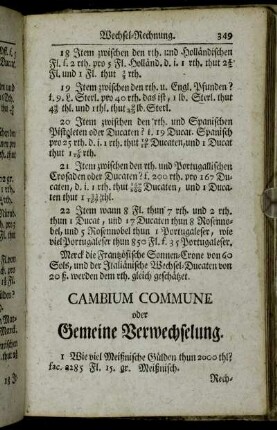 Wechsel-Rechnung. 349
18 Item zwischen den rth. und Holländischen
Fl. f. 2 rth. pro 5 Fl. Holländ. d. i. 1 rth. thut 2½
Fl. und 1 Fl. thut rth.
19 Item zwischen den rth. u. Engl. Pfunden?
f. 9. L. Sterl. pro 40 rth. das ist, 1 lb. Sterl. thut
4 4/9 thl. und 1thl. thut lb. Sterl.
20 Item zwischen den rth. und Spanischen
Pistoleten oder Ducaten? f. 19 Ducat. Spanisch
pro 25 rth. d. i. 1 rth. thut Ducaten, und 1 Ducat
thut 1 rth.
21 Item zwischen den rth. und Portugallischen
Crosaden oder Ducaten? f. 200 rth. pro 167 Du-
caten, d. i. 1 rth. thut Ducaten, und 1 Duca-
ten thut 1 rth.
22 Item wann 8 Fl. thun 7 rth. und 2 rth.
thun 1 Ducat, und 17 Ducaten thun 8 Rosenno-
bel, und 5 Rosennobel thun 1 Portugaleser, wie
viel Portugaleser thun 850 Fl. f. 35 Portugaleser,
Merck die Französische Sonnen-Crone von 60
Sols, und der Italiänische Wechsel-Ducaten von
20 ß. werden dem rth. gleich geschätzet.
CAMBIUM COMMUNE
oder
Gemeine Verwechselung.
1 Wie viel Meißnische Gülden thun 2000 thl?
fac. 2285 Fl. 15. gr. Meißnisch.
Rech-